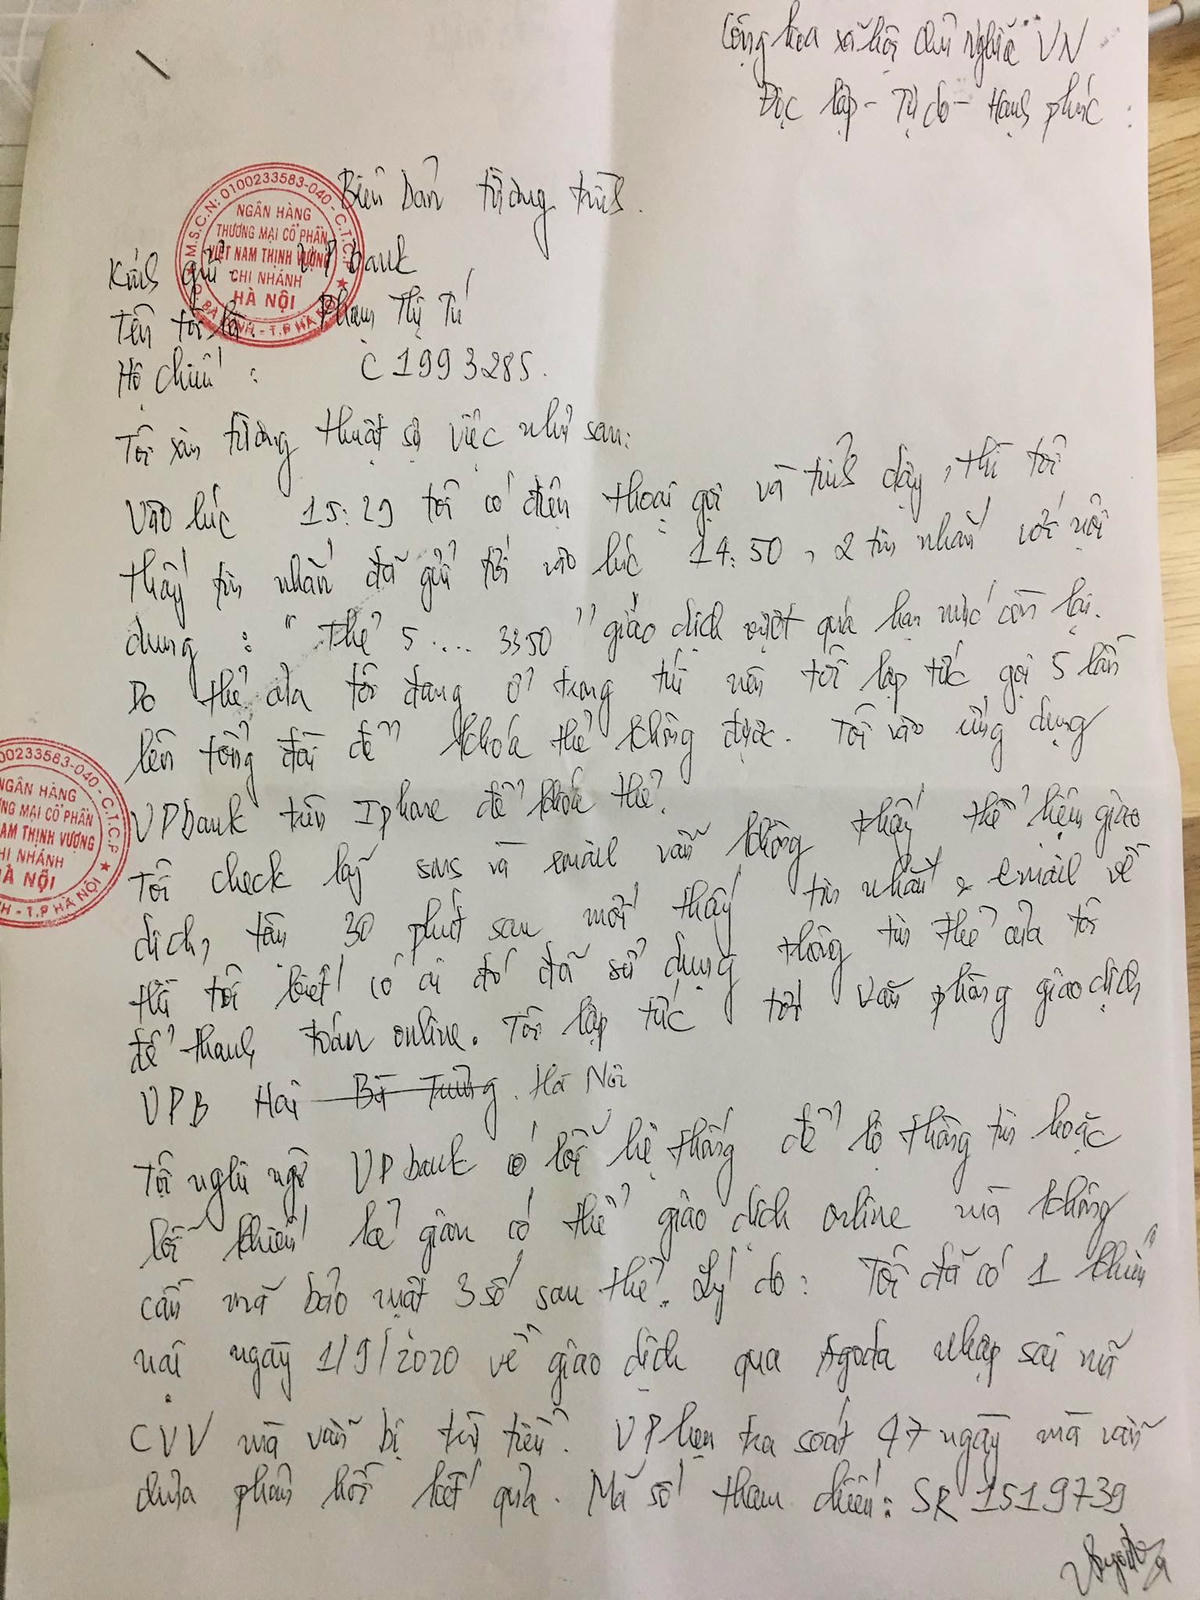 Cộng hòa xã hội chủ nghĩa VN
Độc lập - Tự do - Hạnh phúc
Biên bản tường trình.
M.S.C.N: 0100233583-040 - C.T.C.P
NGÂN HÀNG
THƯƠNG MẠI CỔ PHẦN
VIỆT NAM THỊNH VƯỢNG
CHI NHÁNH
HÀ NỘI
BA ĐÌNH - T.P HÀ NỘI
Kính gửi: VPbank
Tên tôi là: Phạm Thị Tú
Hộ chiếu: C1993285.
Tôi xin tường thuật sự việc như sau:
Vào lúc 15:29 tôi có điện thoại gọi và tỉnh dậy, thì tôi
thấy tin nhắn đã gửi tới vào lúc 14:50, 2 tin nhắn với nội
dung: "Thẻ 5.... 3350" giao dịch vượt quá hạn mức còn lại.
Do thẻ của tôi đang ở trong túi nên tôi lập tức gọi 5 lần
lên tổng đài để khóa thẻ không được. Tôi vào ứng dụng
VPbank trên Iphone để khóa thẻ.
00233583-040 - C.T.C.P
NGÂN HÀNG
NG MẠI CỔ PHẦN
AM THỊNH VƯỢNG
HI NHÁNH
À NỘI
NH - T.P HÀ NỘI
Tôi check lại sms và email vẫn không thấy thể hiện giao
dịch, tầm 30 phút sau mới thấy tin nhắn & email về
thì tôi biết có ai đó đã sử dụng thông tin thẻ của tôi
để thanh toán online. Tôi lập tức tới văn phòng giao dịch
VPB Hai Bà Trưng. Hà Nội
Tôi nghi ngờ VPbank có lỗi hệ thống để lộ thông tin hoặc
lỗi khiến kẻ gian có thể giao dịch online mà không
cần mã bảo mật 3 số sau thẻ. Lý do: Tôi đã có 1 khiếu
nại ngày 1/9/2020 về giao dịch qua Agoda nhập sai mã
CVV mà vẫn bị trừ tiền. VP hẹn tra soát 47 ngày mà vẫn
chưa phản hồi kết quả. Mã số tham chiếu: SR 1519739